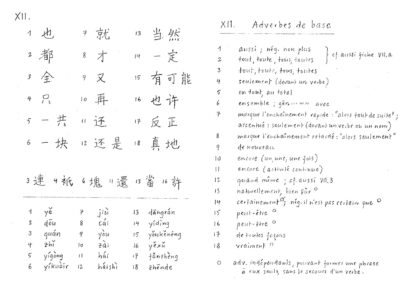 XII.
1 也 7 就 13 当然
2 都 8 才 14 一定
3 全 9 又 15 有可能
4 只 10 再 16 也许
5 一共 11 还 17 反正
6 一块 12 还是 18 真地
3 連 4 祇 6 塊 11 還 13 當 16 許
1 yě 7 jiù 13 dāngrán
2 dōu 8 cái 14 yīdìng
3 quán 9 yòu 15 yǒukěnéng
4 zhǐ 10 zài 16 yěxǔ
5 yīgòng 11 hái 17 fǎnzhèng
6 yīkuàir 12 háishì 18 zhēnde
XII. Adverbes de base
1 aussi ; nég. non plus
2 tout, toute, tous, toutes
cf aussi fiche VII.a
3 tout, toute, tous, toutes
4 seulement (devant un verbe)
5 en tout, au total
6 ensemble ; avec
7 marque l'enchaînement rapide : "alors tout de suite" ;
accentué : seulement (devant un verbe ou un nom)
8 marque l'enchaînement retardé : "alors seulement"
9 de nouveau
10 encore (un, une, une fois)
11 encore (activité continue)
12 quand même ; cf aussi VII.3
13 naturellement, bien sûr o
14 certainement o ; nég. il n'est pas certain que o
15 peut-être o
16 peut-être o
17 de toutes façons
18 vraiment
o adv. indépendants, pouvant former une phrase
à eux seuls, sans le secours d'un verbe.